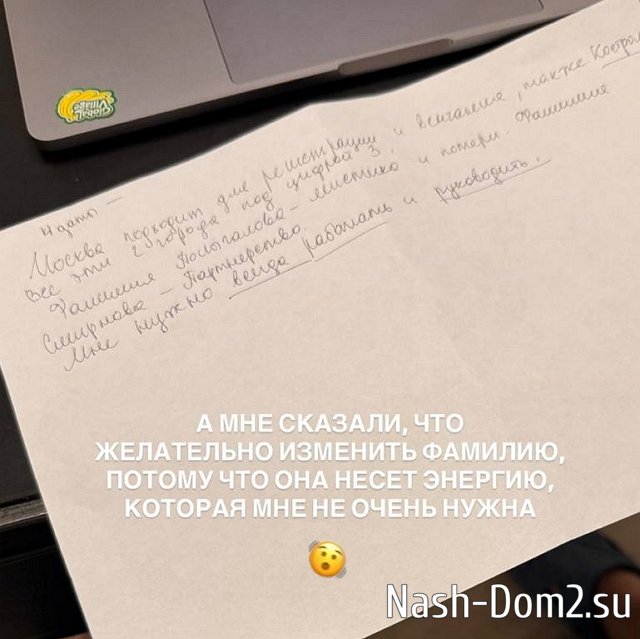 4 даты —
Москва подходит для регистрации и венчания, также Костром
все эти 2 города под цифрой 3.
Фамилия Посыпалова - мистика и потери. Фамилия
Смирнова - Партнерство.
Мне нужно всегда работать и руководить.
А МНЕ СКАЗАЛИ, ЧТО
ЖЕЛАТЕЛЬНО ИЗМЕНИТЬ ФАМИЛИЮ,
ПОТОМУ ЧТО ОНА НЕСЕТ ЭНЕРГИЮ,
КОТОРАЯ МНЕ НЕ ОЧЕНЬ НУЖНА
Nash-Dom2.su